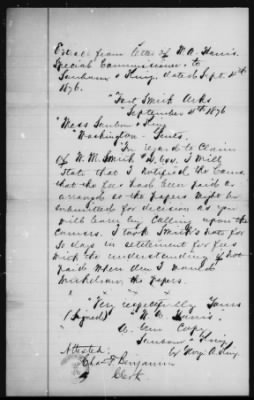 Extract from letter of W. A. Harris
Special Commissioner to
Sanborn & King, dated Sept. 4th
1876.
"Fort Smith Arks
"September 4th 1876
"Mess Sanborn & King
"Washington
"In regard to Claim
of W. M. Smith I will
State that I notified the
that the fees had been paid &
the papers might be
submitted for decision as you
will learn by calling upon the
I took Smith's note for
30 days in settlement for fees
with the understanding if not
paid when due I would
the papers.
"Very respectfully Yours
(Signed) "W. A. Harris
A true Copy
Sanborn & King
by Geo. A. King
Attested:
Chas. F. Benjamin
Clerk